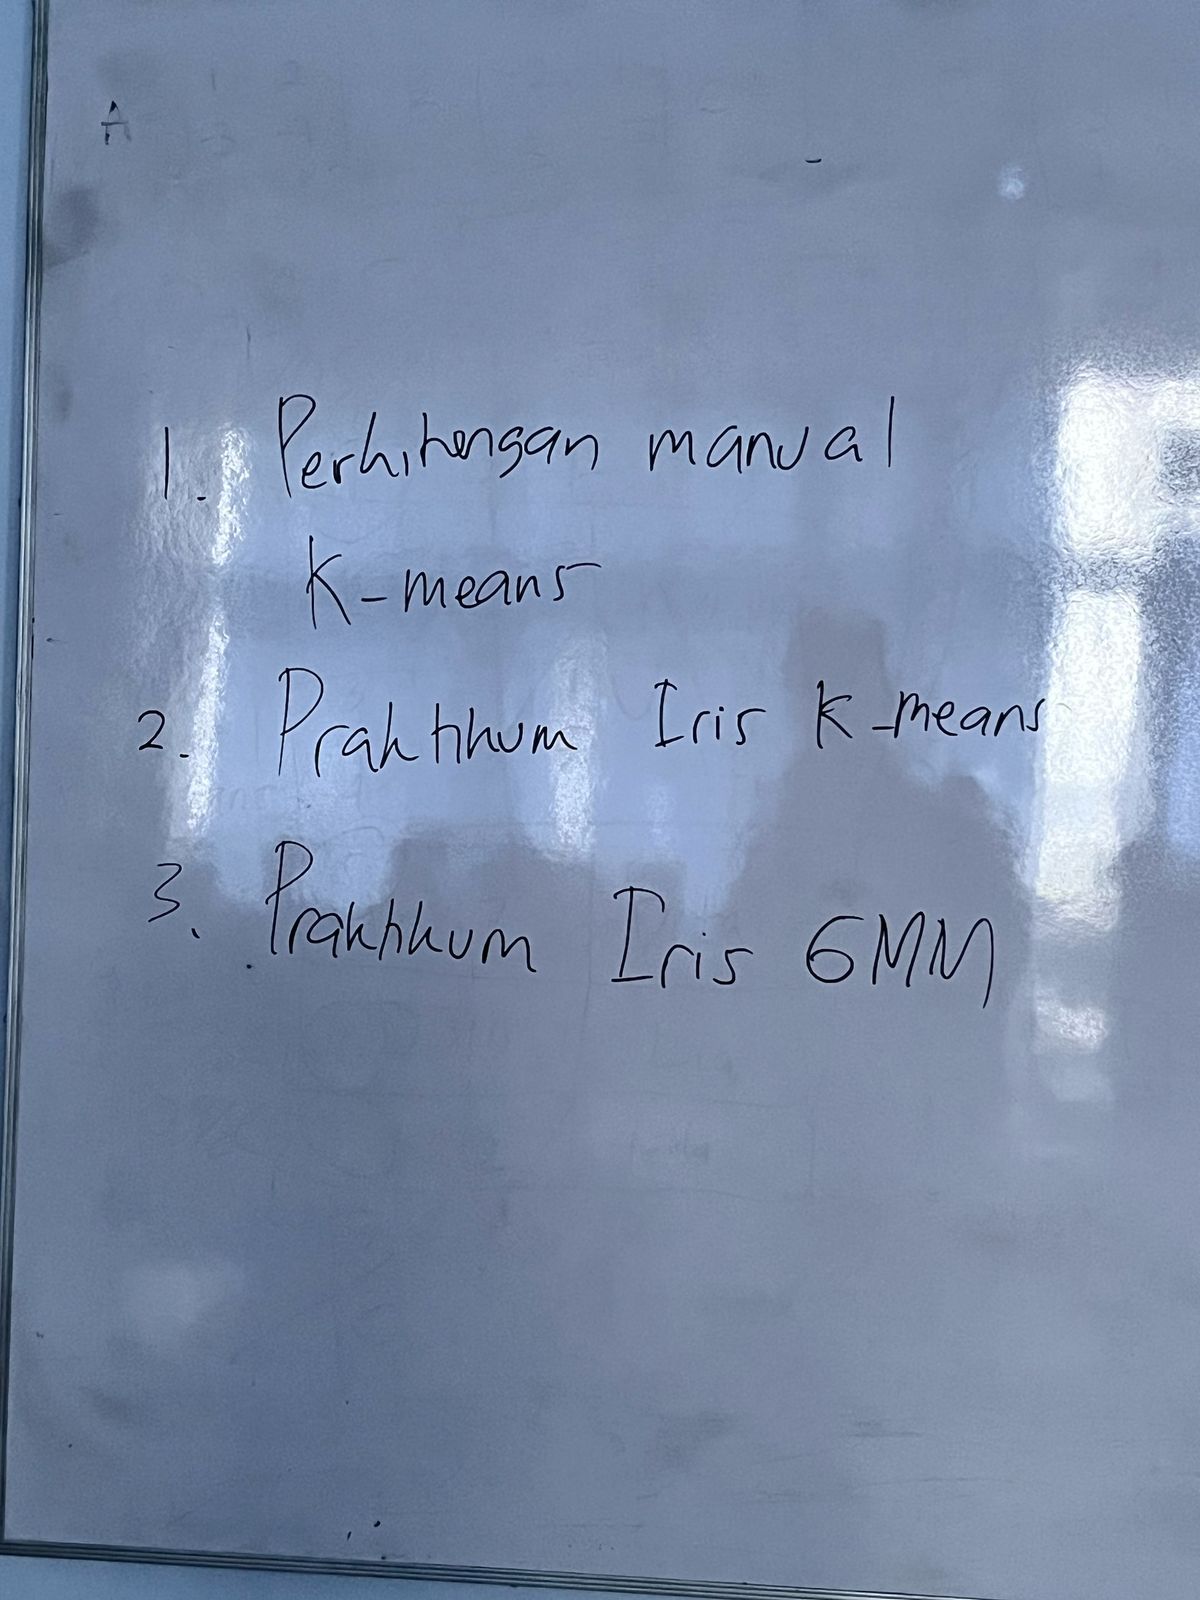 A
1. Perhitungan manual
K-means
2. Praktikum Iris K-means
3. Praktikum Iris GMM